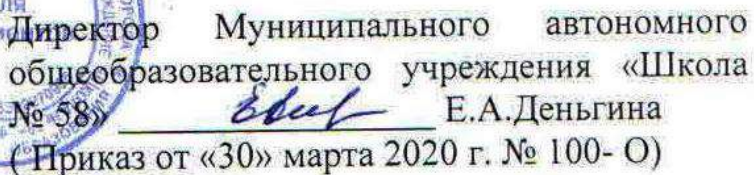 Директор Муниципального автономного
общеобразовательного учреждения «Школа
№ 58» Е.А.Деньгина
( Приказ от «30» марта 2020 г. № 100- О)